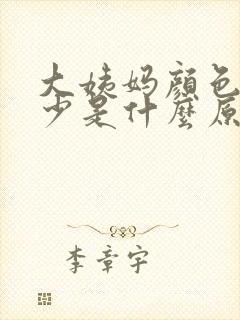 大姨妈颜色
少是什麼原
李章宇